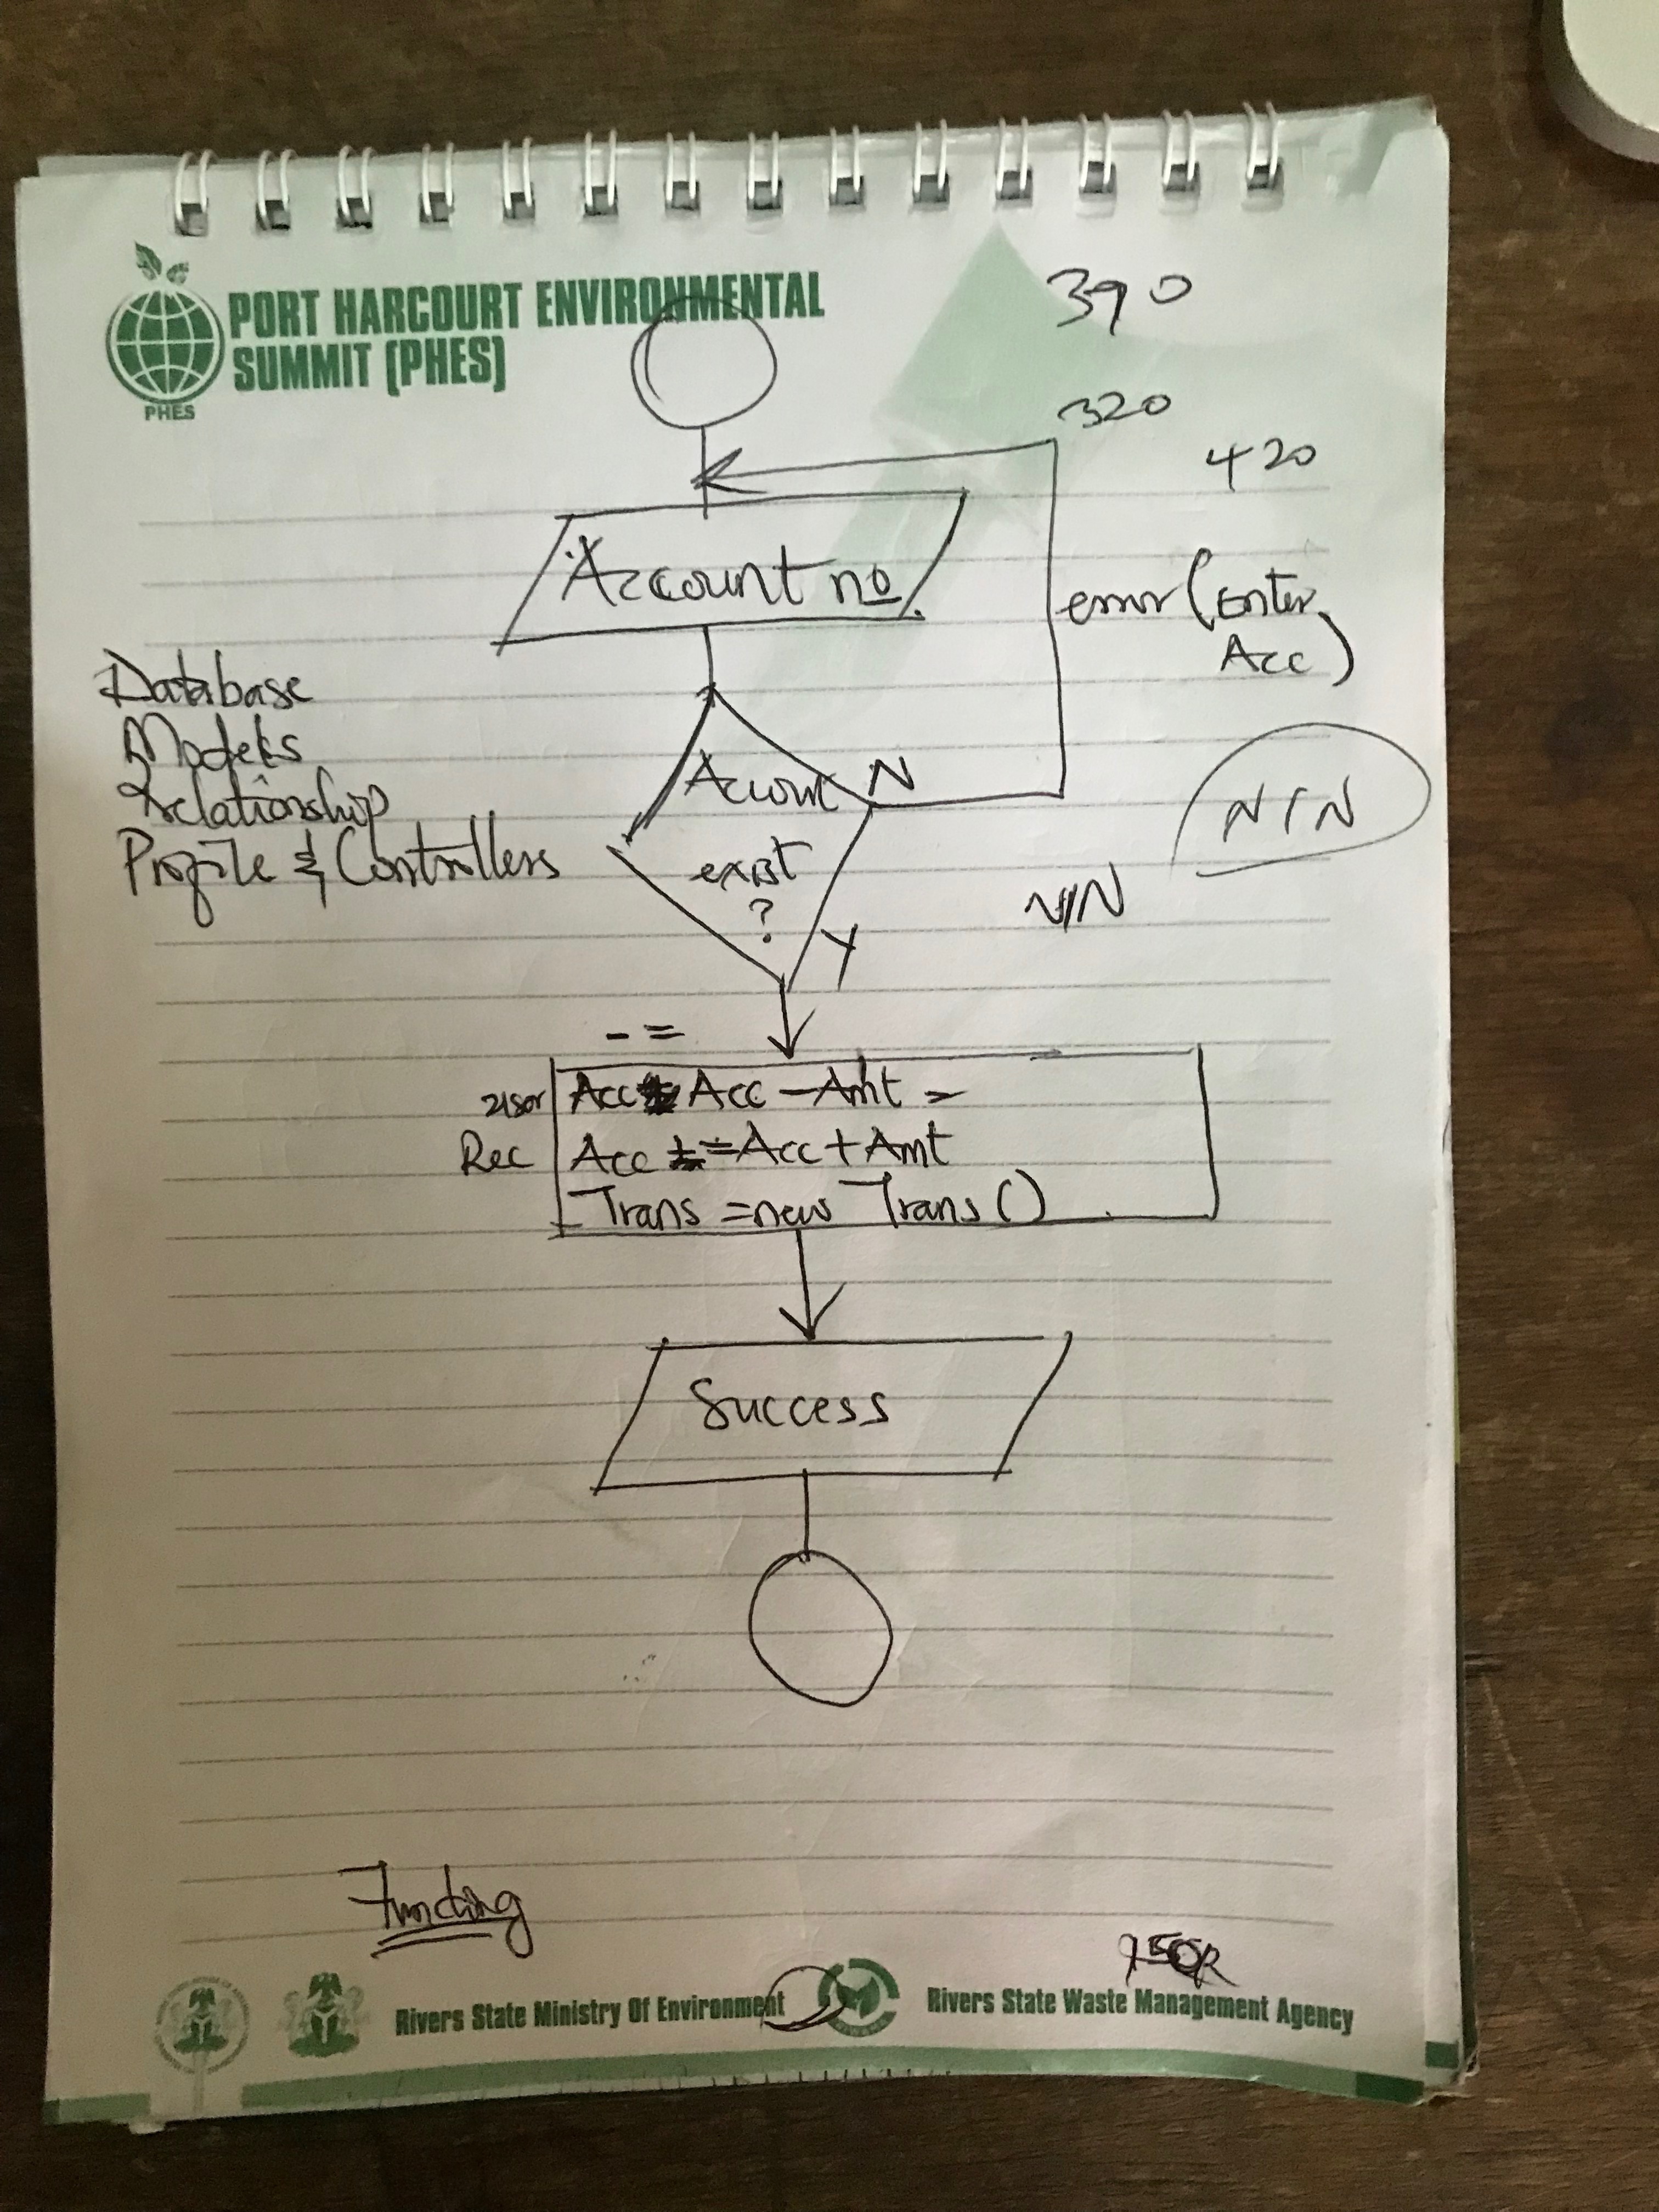 PORT HARCOURT ENVIRONMENTAL
SUMMIT (PHES)
PHES
390
320
420
Account no
error (Enter
Acc)
Database
Models
Relationship
Profile & Controllers
Account
N
exist
?
Y
NIN
NIN
- =
user Acc Acc - Amt =
Rec Acc = Acc + Amt
Trans = new Trans ()
Success
Funding
Rivers State Ministry Of Environment
Rivers State Waste Management Agency